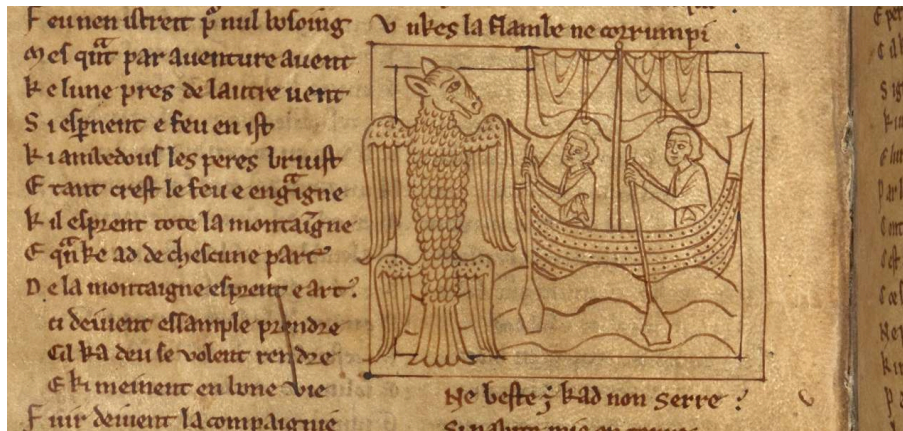 Feu nen istreit pͬ nul bosoing
Mes qͣnt par aventure avent
Ke lune pres de lautre vent
Si esp̱nent e feu en ist
Ki ambedous les peres bruist
E tant crest le feu e engͣigne
Kil esprent tote la montaīgne
E qͣnke ad de chescune part
De la montaigne esprent e art
Ci deivent essample prendre
Cil ka deu se volent rendre
E ki meinent en bone vie
Fuir deivent la compaignie
Unkes la flambe ne corrumpi
Ne beste ẏ kad non Serre